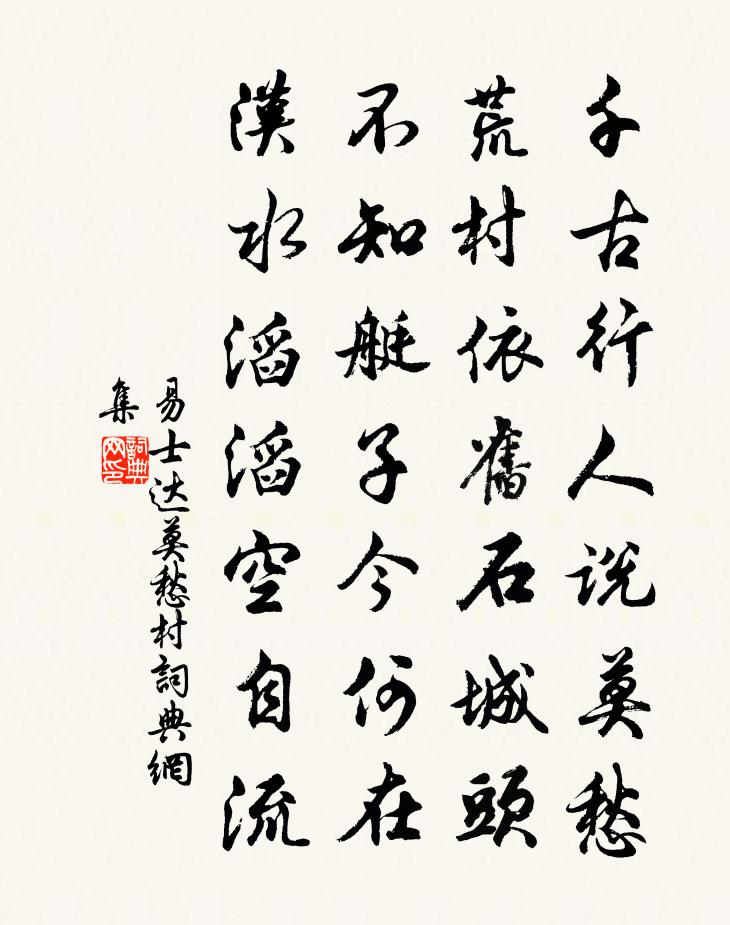 千古行人説莫愁
荒村依舊石城頭
不知艇子今何在
漢水滔滔空自流
易士达莫愁村詞典網
集
詞典
网印